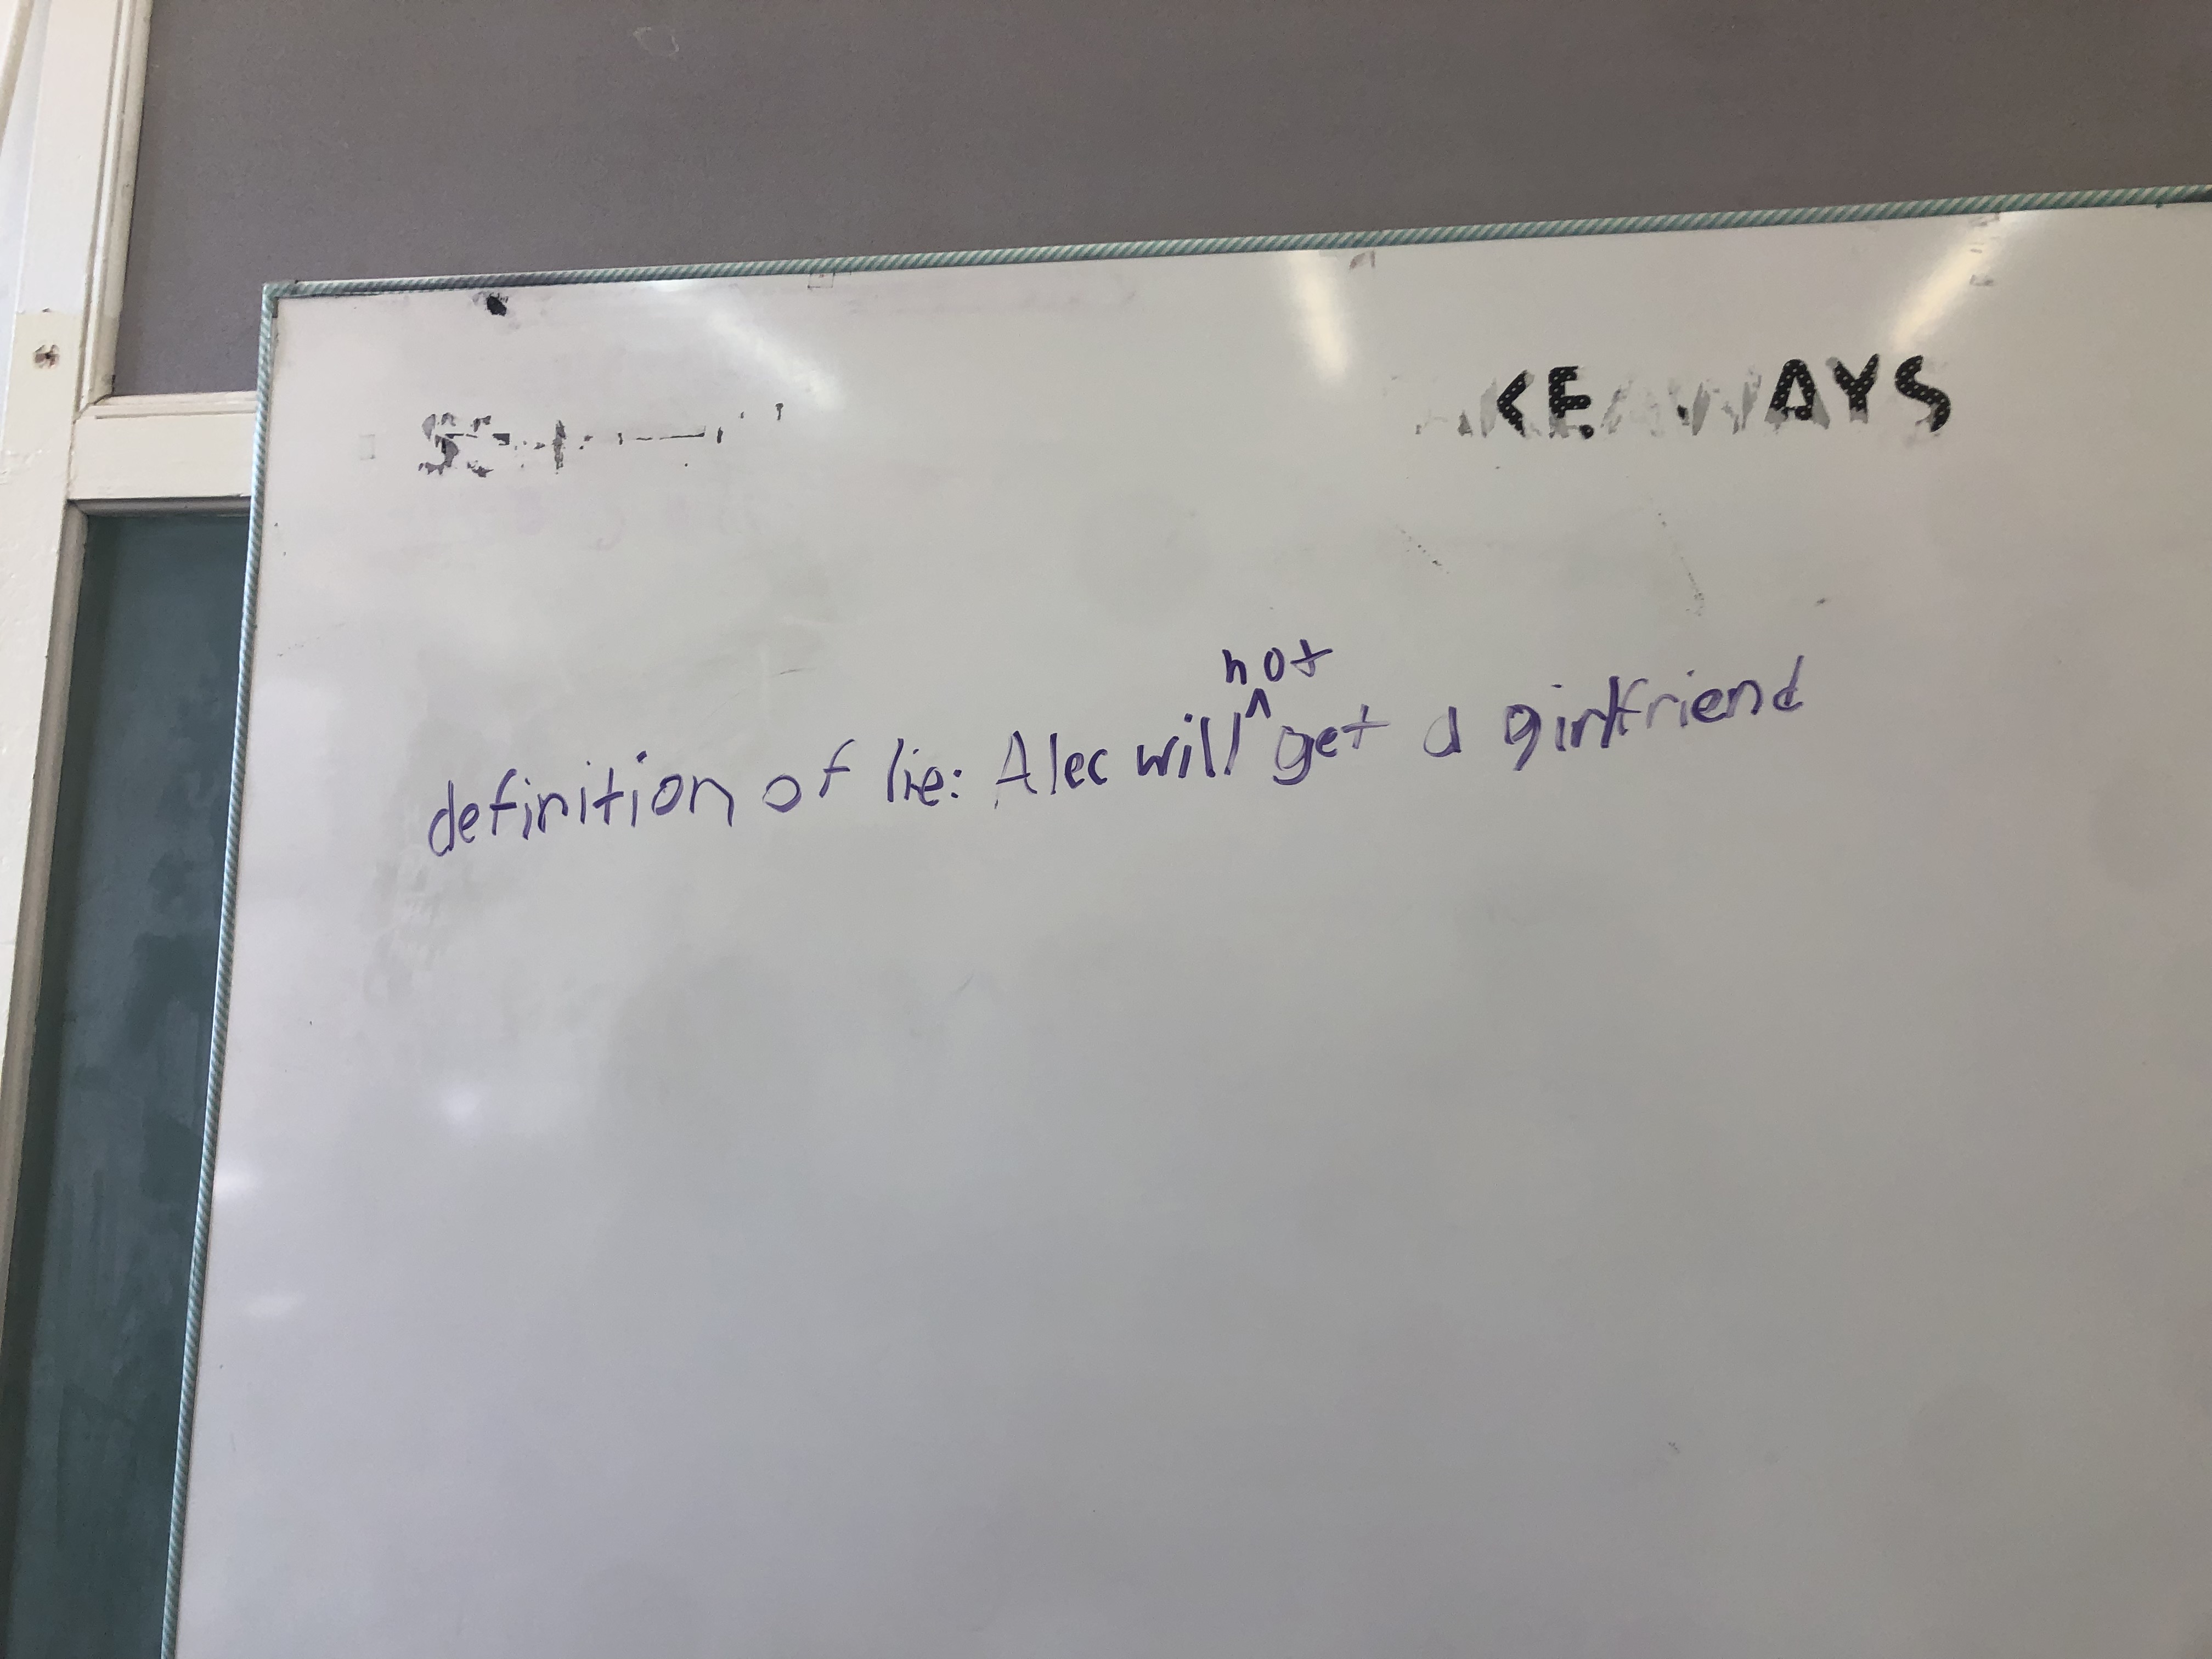 KE AYS
not
definition of lie: Alec will ^ get a girlfriend